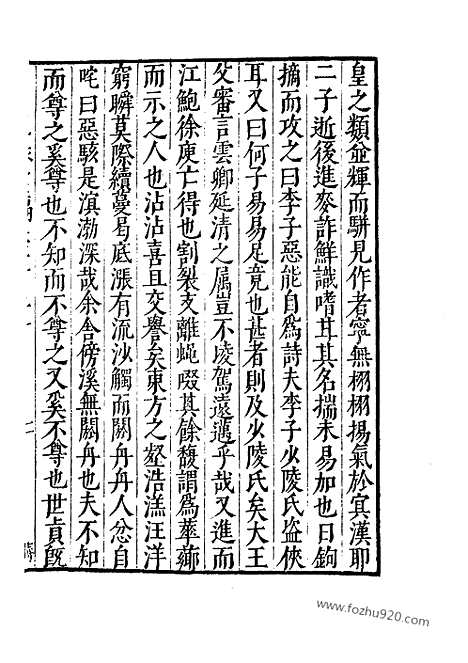 皇之類並輝而駢見作者寧無栩栩揚氣於㝠漢耶
二子逝後進麥詐鮮識嗜耳其名揣未易加也日鉤
摘而攻之曰李子惡能自爲詩夫李子少陵氏盜俠
耳又曰何子易易足竟也甚者則及少陵氏矣大王
父審言雲卿延清之属豈不陵駕遠邁乎哉又進而
江鮑徐庾亡得也割裂支離蠅啜其餘馥謂爲蘂薌
而示之人也沾沾喜且交譽矣東方之壑浩溔汪洋
窮瞬莫際續蔓曷底漲有流沙觸而闕舟舟人忿自
咤曰惡駭是滇渤深哉余舎傍溪無闕舟也夫不知
而尊之奚尊也不知而不尊之又奚不尊也世貞旣
www.fozhu920.com